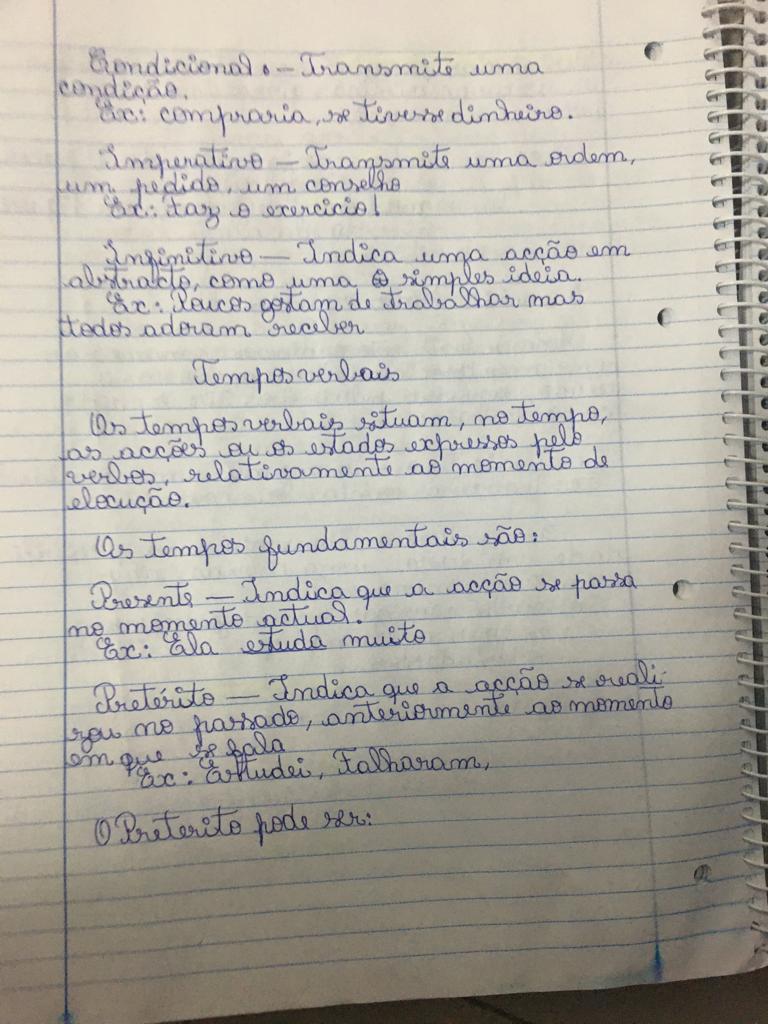 Condicional. - Transmite uma
condição.
Ex: compraria, se tivesse dinheiro.
Imperativo - Transmite uma ordem,
um pedido, um conselho
Ex: Faz o exercicio!
Infinitivo - Indica uma acção em
abstracto, como uma simples ideia.
Ex: Poucos gostam de trabalhar mas
todos adoram receber
Tempos verbais
Os tempos verbais situam, no tempo,
as acções ou os estados expressos pelo
verbos, relativamente ao momento de
elocução.
Os tempos fundamentais são:
Presente - Indica que a acção se passa
no momento actual.
Ex: Ela estuda muito
Pretérito - Indica que a acção se reali-
zou no passado, anteriormente ao momento
em que se fala
Ex: Estudei, Falharam,
O Preterito pode ser: